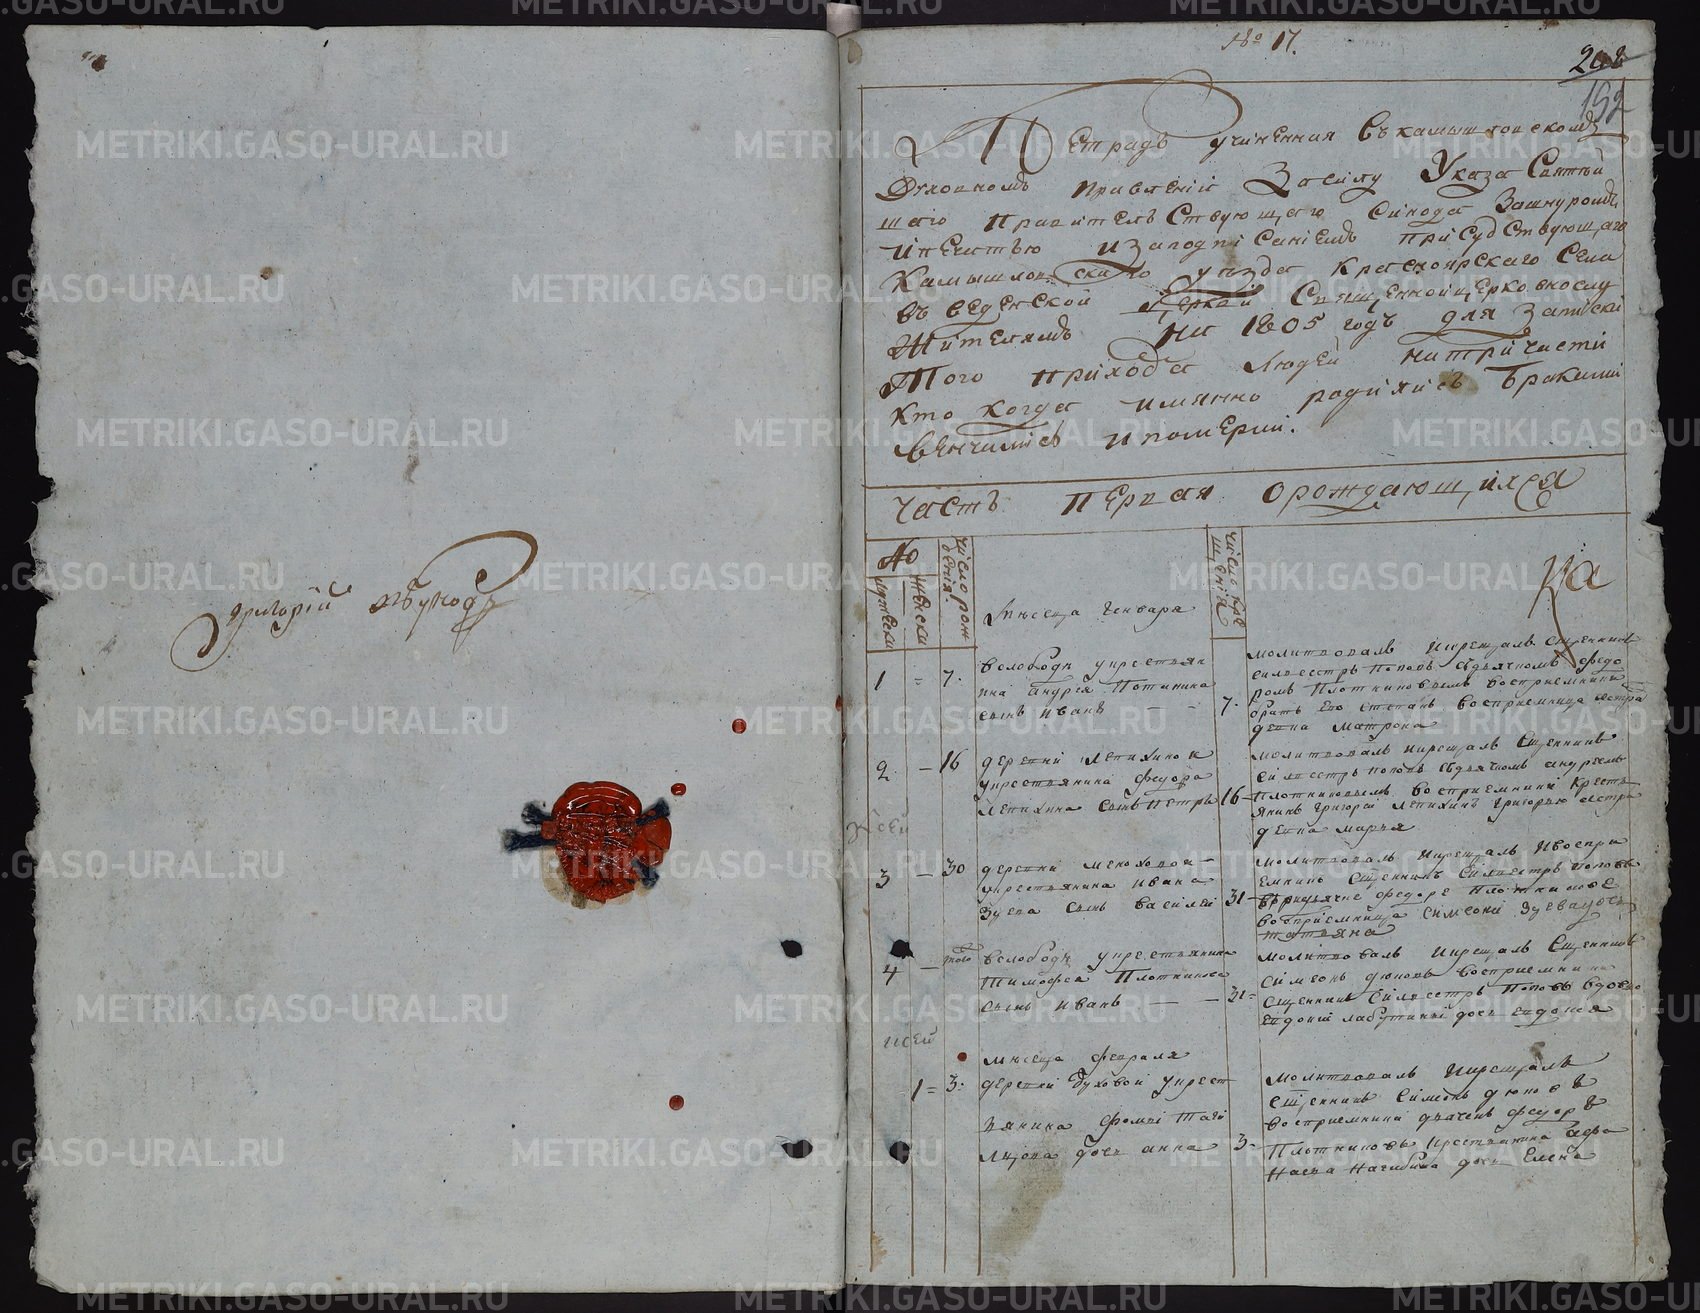 григорий
№ 17.
208
152
Тетрадь учиненная въ камышловскомъ
Духовномъ правленіи Засилу Указа Святей
шаго правительствующаго синода Зашнуромъ
ипечатью изаподписаніемъ присудствующаго
Камышловскаго уезда красноярскаго села
введенской церкви священноицерковнослу
жителямъ на 1805 годъ для записки
Того прихода людей натричасти
кто когда имянно родились бракомъ
венчались ипомерли.
часть первая орождающихся
№
мужески
женски
число рож
денія.
Месеца генваря
число кре
щенія
1 = 7.
вслободе укрестьян
ина андрея Потапина
сынъ иванъ — —
7.
молитвовалъ икрещалъ Сщенникъ
силвестръ поповъ съдьячкомъ федо
ромъ плотниковымъ восприемники
братъ его степанъ восприемница сестра
девка матрона
2 — 16
деревни лепихиной
укрестьянина федора
лепихина сынъ петръ
16 —
молитвовалъ икрещалъ Сщенникъ
силвестръ поповъ съдьячкомъ андреемъ
плотниковымъ восприемники крестъ
янинъ григорей лепихинъ григорью сестра
девка марья
3 — 30
деревни
укрестьянина ивана
Зуева сынъ василей
31
молитвовалъ икрещалъ ивоспри
емникъ Сщенникъ силвестръ поповъ
придьячке федоре плотникове
восприемница симеона Зуева дочь
татьяна
4 — того
вслободе укрестьянина
тимофея плотникова
сынъ иванъ — —
31 =
молитвовалъ икрещалъ Сщенникъ
симеонъ дюковъ восприемники
Сщенникъ силвестръ поповъ вдовы
евдокіи лабутиной дочь евдокея
исей
месеца февраля
1 = 3.
деревни буховой укрест
ьянина фомы
дочь анна
3 —
молитвовалъ икрещалъ
Сщенникъ симеонъ дюковъ
восприемники дьячекъ федоръ
плотниковъ икрестьянина афа
насья нагибина дочь елена